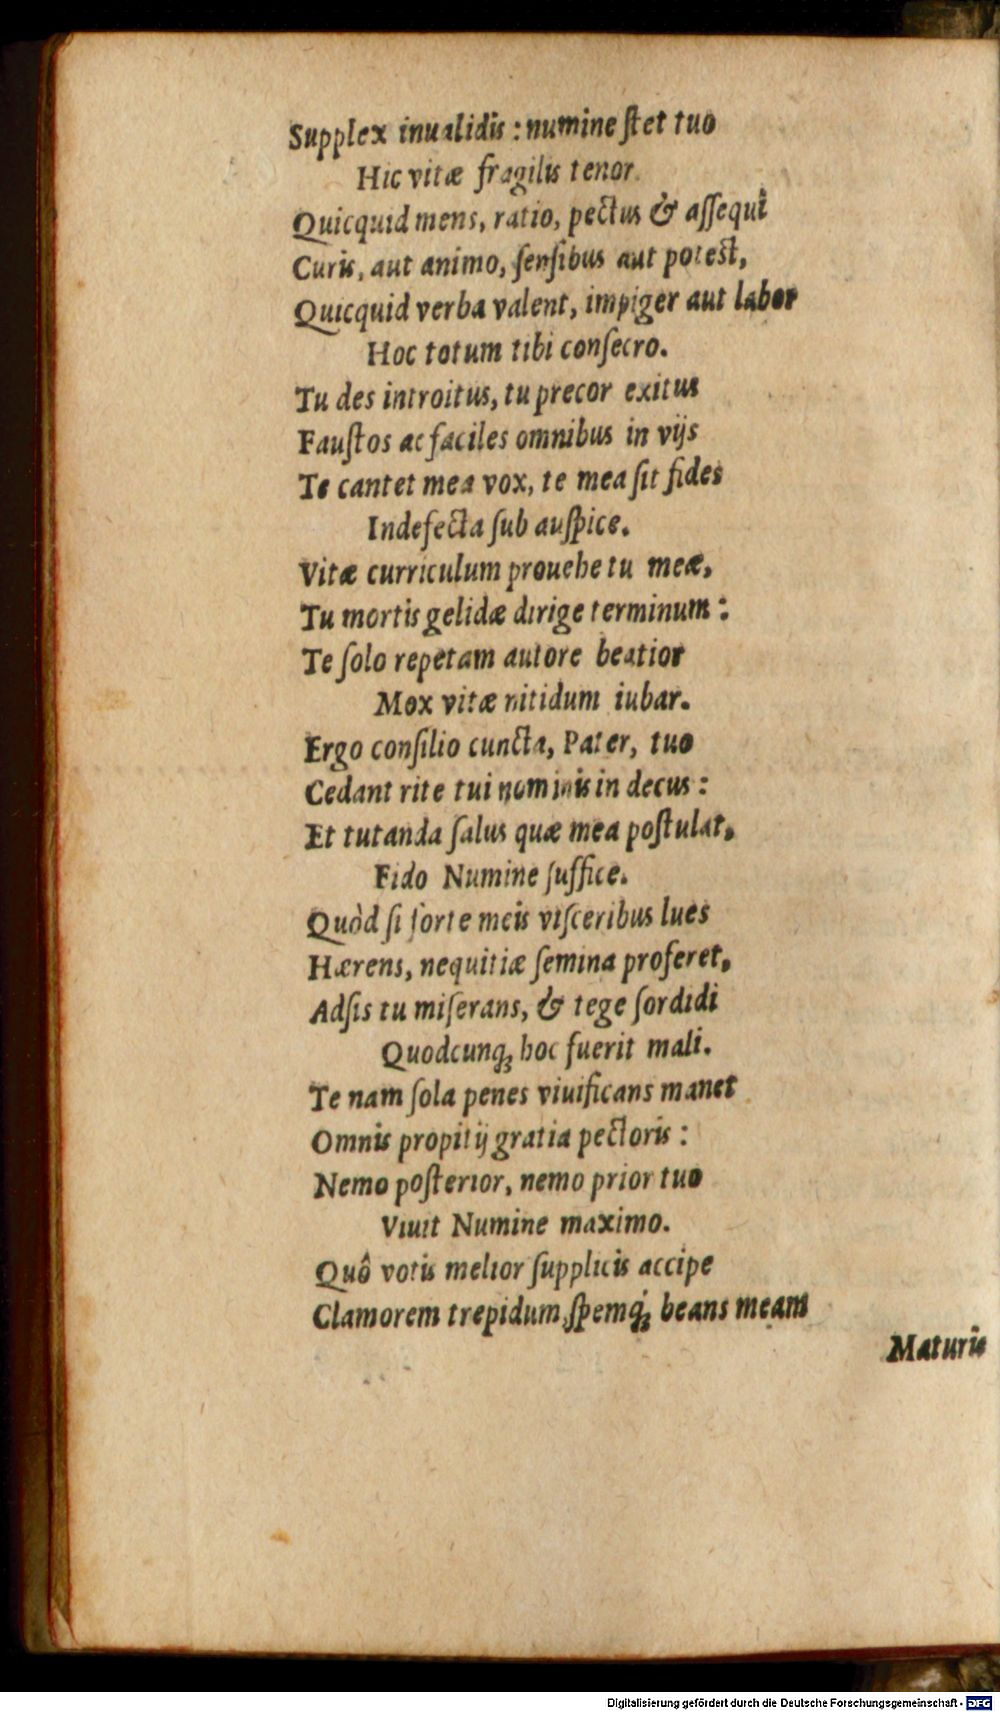 Supplex inualidis : numine ſtet tuo
Hic vitæ fragilis tenor.
Quicquid mens, ratio, pectus & aſſequî
Curis, aut animo, ſenſibus aut poteſt,
Quicquid verba valent, impiger aut labor
Hoc totum tibi conſecro.
Tu des introitus, tu precor exitus
Fauſtos ac faciles omnibus in vijs
Te cantet mea vox, te mea ſit fides
Indefecta ſub auſpice.
Vitæ curriculum prouehe tu meæ,
Tu mortis gelidæ dirige terminum :
Te ſolo repetam autore beatior
Mox vitæ nitidum iubar.
Ergo conſilio cuncta, Pater, tuo
Cedant rite tui nominis in decus :
Et tutanda ſalus quæ mea poſtulat,
Fido Numine ſuffice.
Quòd ſi forte meis viſceribus lues
Hærens, nequitiæ ſemina proferet,
Adſis tu miſerans, & tege ſordidi
Quodcunq; hoc fuerit mali.
Te nam ſola penes viuificans manet
Omnis propitij gratia pectoris :
Nemo poſterior, nemo prior tuo
Viuit Numine maximo.
Quô votis melior ſupplicis accipe
Clamorem trepidum, ſpemq́; beans meam
Maturis
Digitalisierung gefördert durch die Deutsche Forschungsgemeinschaft - DFG